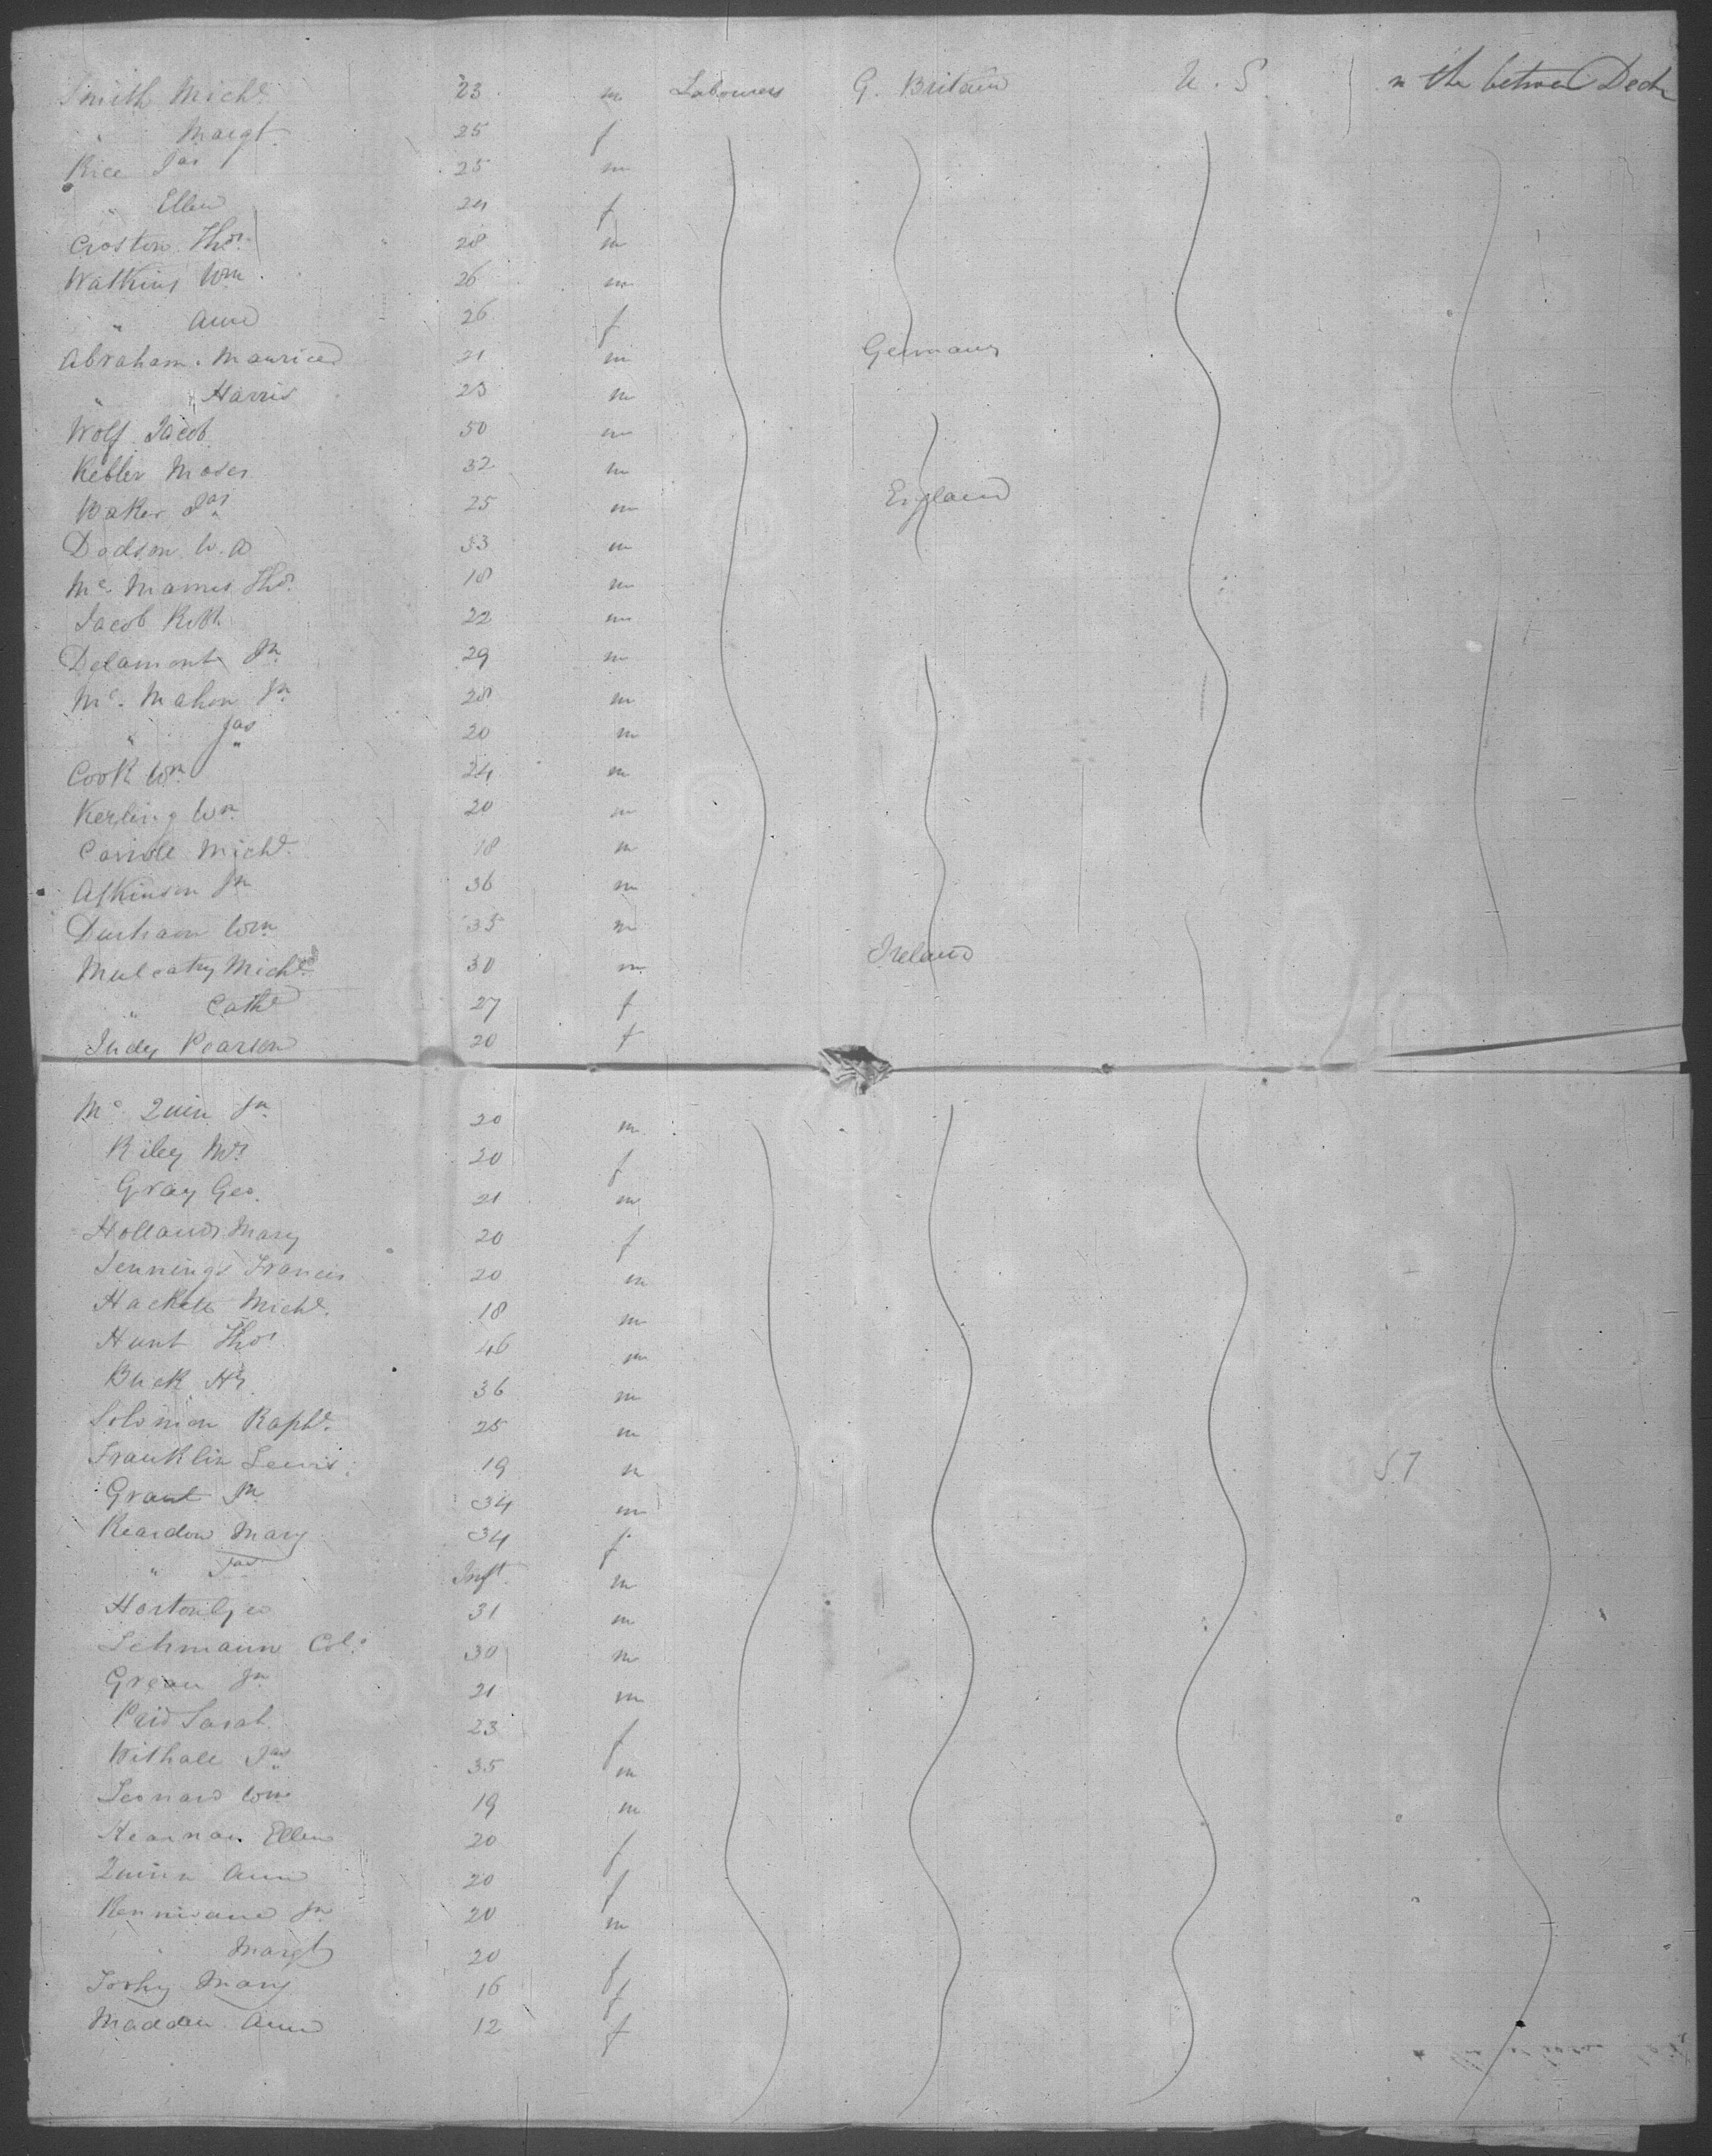 Smith Michl. 23 m Labourers G. Britain U. S. in the between Decks
" Margt. 25 f
Rice Jas 25 m
" Ellen 24 f
Croston Thos. 28 m
Watkins Wm. 26 m
" Ann 26 f
Abraham Maurice 21 m Germany
" Harris 23 m
Wolf Jacob 50 m
Kebler Moses 32 m
Baker Jas 25 m England
Dodson W. 33 m
Mc. Thos. 18 m
Jacob 22 m
Delamont Jn 29 m
Mc. Mahon Jn 28 m
" Jas 20 m
Cook Wm 24 m
Kerling Wm. 20 m
Michl. 18 m
Atkinson Jn 36 m
Durham Wm 35 m
Mulcatry Michl. 30 m Ireland
" Cathe 27 f
Judy Pearson 20 f
Mc Quin Jn 20 m
Riley Mrs 20 f
Gray Geo. 21 m
Holland Mary 20 f
Jennings Francis 20 m
Hackett Michl. 18 m
Hunt Thos 46 m
Buck Hy 36 m
Solomon Raphl. 25 m
Franklin Lewis 19 m 51
Grant Jn 34 m
Reardon Mary 34 f
" Jas Inft. m
Horton Geo 31 m
Lehmann Col. 30 m
Green Jn 21 m
Sarah 23 f
Withall Jas 35 m
Leonard Wm 19 m
Kearnan Ellen 20 f
Quinn Ann 20 f
Jn 20 m
" Margt 20 f
Mary 16 f
Madden Ann 12 f